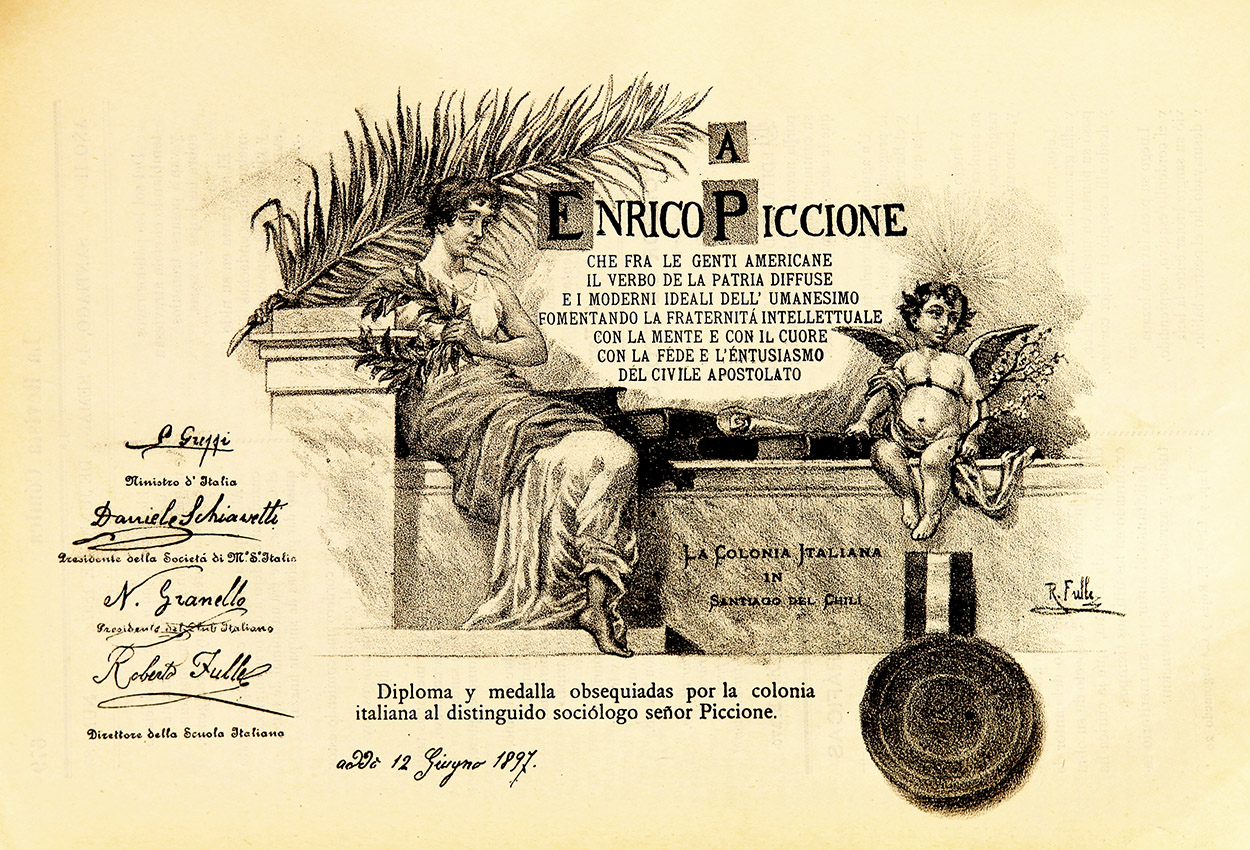 A
ENRICO PICCIONE
CHE FRA LE GENTI AMERICANE
IL VERBO DE LA PATRIA DIFFUSE
E I MODERNI IDEALI DELL' UMANESIMO
FOMENTANDO LA FRATERNITÁ INTELLETTUALE
CON LA MENTE E CON IL CUORE
CON LA FÉDE E L'ÉNTUSIASMO
DÉL CIVILE APOSTOLATO
Ministro d' Italia
Daniele Schiavetti
Presidente della Societá di M.º S.º Italia
N. Granello
Presidente del Club Italiano
Roberto Fulle
Direttore della Scuola Italiana
LA COLONIA ITALIANA
IN
SANTIAGO DEL CHILI
R. Fulle
Diploma y medalla obsequiadas por la colonia
italiana al distinguido sociólogo señor Piccione.
addì 12 Giugno 1897.